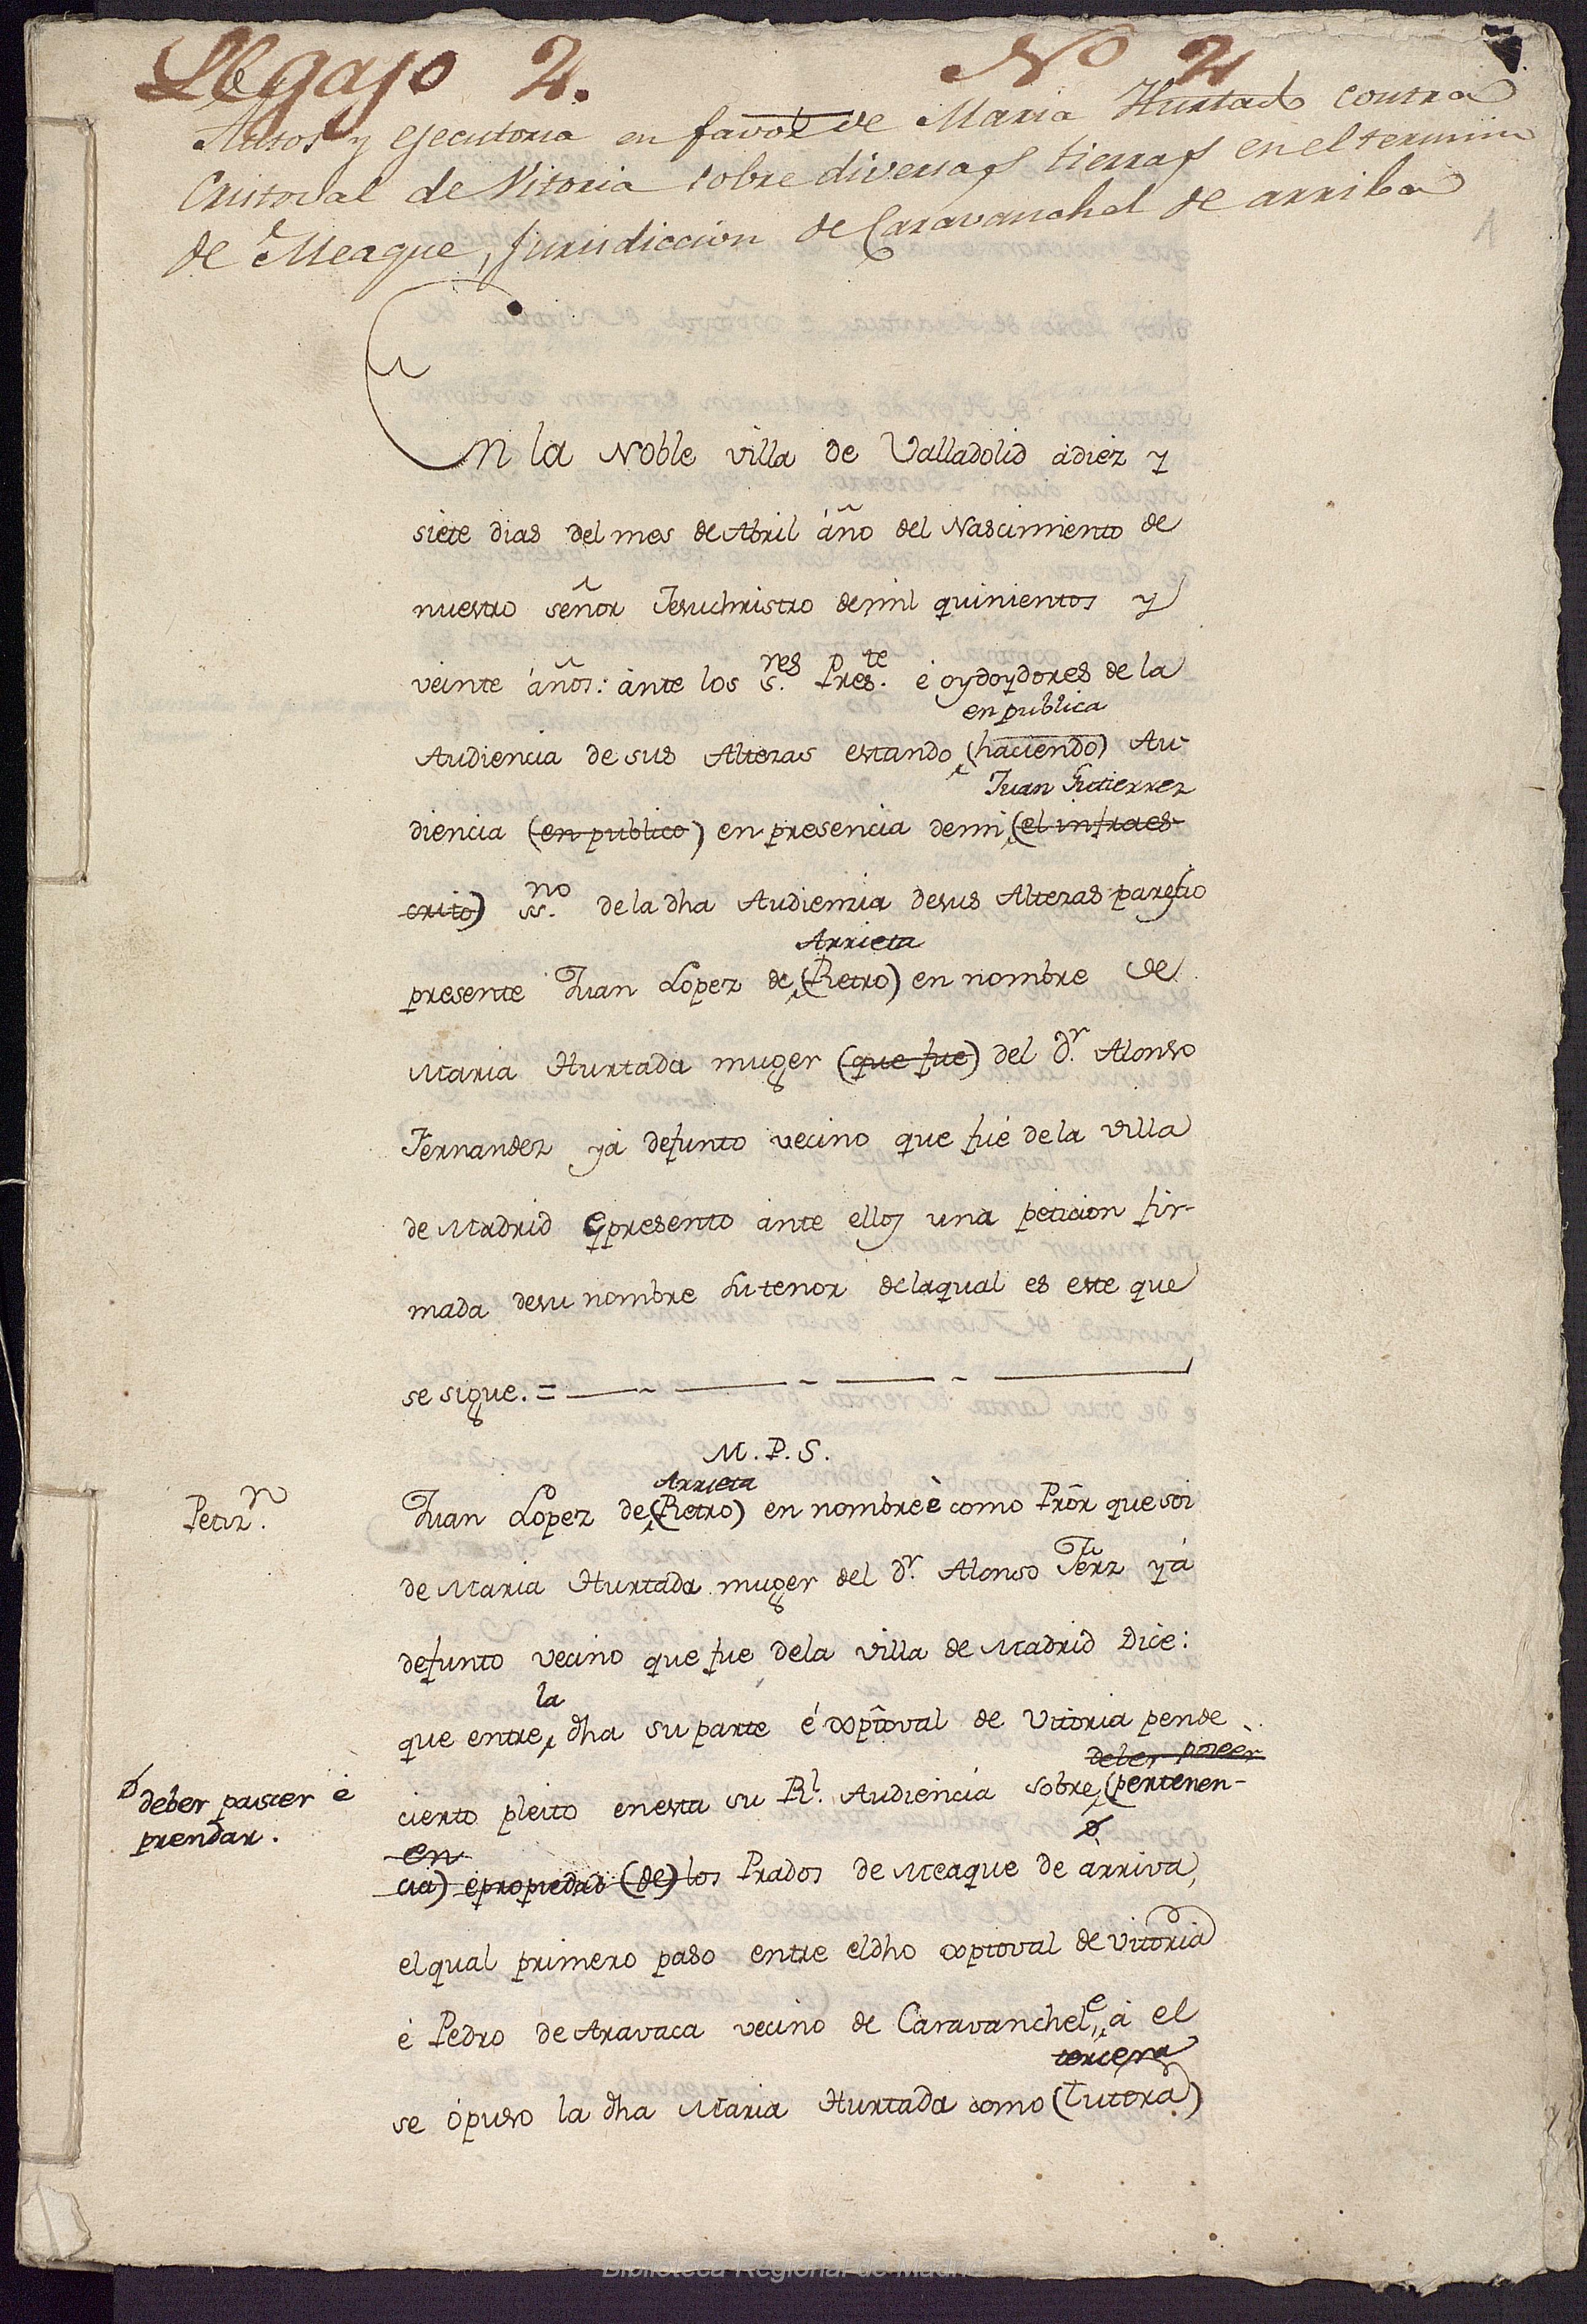 Legajo 2. Nº 2
Autos y ejecutoria en favor de Maria Hurtado contra
Cristoval de Vitoria sobre diversas tierras en el termino
de Meaque, Jurisdiccion de Caravanchel de arriba
1
En la Noble villa de Valladolid á diez y
siete dias del mes de Abril año del Nascimiento de
nuestro señor Jesuchristro de mil quinientos y
veinte años: ante los S.res Pres.te é oydoydores de la
en publica
Audiencia de sus Altezas estando (haciendo) Au-
Juan Gutierrez
diencia (en publico) en presencia de mi (el infraes-
crito) ss.no de la dha Audiencia de sus Altezas paresçio
Arrieta
presente Juan Lopez de (Retro) en nombre de
Maria Hurtada muger (que fue) del d.r Alonso
Fernandez yá defunto vecino que fué de la villa
de Madrid e presento ante ellos una peticion fir-
mada de su nombre su tenor de la qual es este que
se sigue. =
M. P. S.
Arrieta
Petiz.n
Juan Lopez de (Retro) en nombre è como Prõr que soi
de Maria Hurtada muger del d.r Alonso Fẽrz yá
defunto vecino que fue de la villa de Madrid Dice:
la
que entre dha su parte é xptoval de Vitoria pende
deber poseer
deber pascer é
prendar.
cierto pleito en esta su R.l Audiencia sobre (pertenen-
en
cia) e propiedad (de) los Prados de Meaque de arriva,
el qual primero paso entre el dho xptoval de Vitoria
é Pedro de Aravaca vecino de Caravanchel e á el
tercera
se ópuso la dha Maria Hurtada como (Tutora)
Biblioteca Regional de Madrid